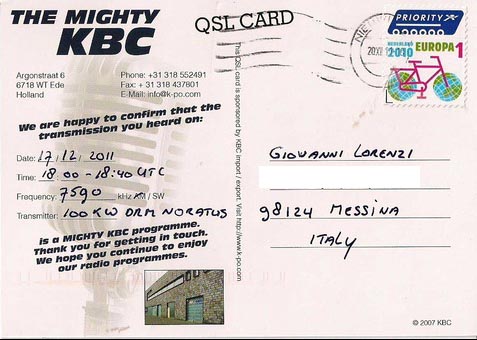 THE MIGHTY
KBC
Argonstraat 6
6718 WT Ede
Holland
Phone: +31 318 552491
Fax: +31 318 437801
E-Mail: info@k-po.com
We are happy to confirm that the
transmission you heard on:
Date: 17/12/2011
Time: 18:00 - 18:40 UTC
Frequency: 7590 kHz AM / SW
Transmitter: 100 KW DRM NORATUS
is a MIGHTY KBC programme.
Thank you for getting in touch.
We hope you continue to enjoy
our radio programmes.
QSL CARD
This QSL card is sponsored by KBC import / export. Visit http://www.k-po.com
PRIORITY
NEDERLAND
2010
EUROPA 1
GIOVANNI LORENZI
98124 MESSINA
ITALY
© 2007 KBC